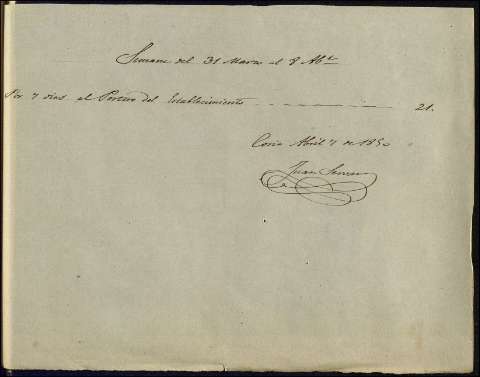 Semana del 31 Marzo al 8 Ab.l
Por 7 dias al Portero del Establecimiento 21.
Coria Abril 7 de 1850
Juan